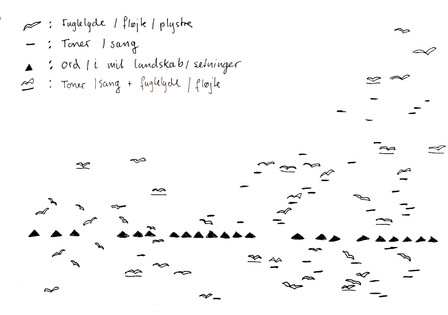 : Fuglelyde / fløjte / plystre
: Toner / sang
: Ord / i mit landskab / sætninger
: Toner / sang + fuglelyde / fløjte